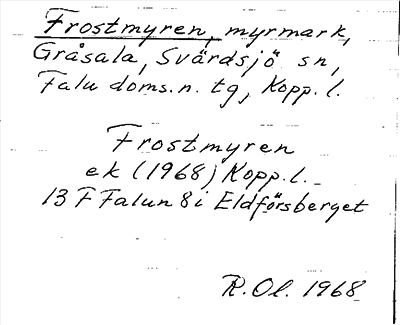 Frostmyren, myrmark,
Gråsala, Svärdsjö sn,
Falu doms.n. tg, Kopp. l.
Frostmyren
ek (1968) Kopp. l.
13 F Falun 8 i Eldförsberget
R. Ol. 1968